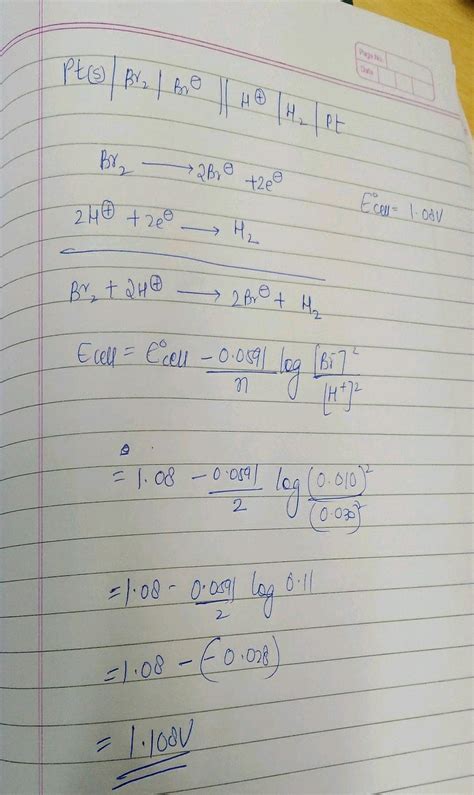 Page No.
Date
Pt(s) | Br₂ | Br⊖ || H⊕ | H₂ | Pt
Br₂ ⟶ 2Br⊖ + 2e⊖
E°cell = 1.08V
2H⊕ + 2e⊖ ⟶ H₂
Br₂ + 2H⊕ ⟶ 2Br⊖ + H₂
Ecell = E°cell - 0.0591/n log [Br⁻]²/[H⁺]²
= 1.08 - 0.0591/2 log (0.010)²/(0.030)²
= 1.08 - 0.0591/2 log 0.11
= 1.08 - (-0.028)
= 1.108V